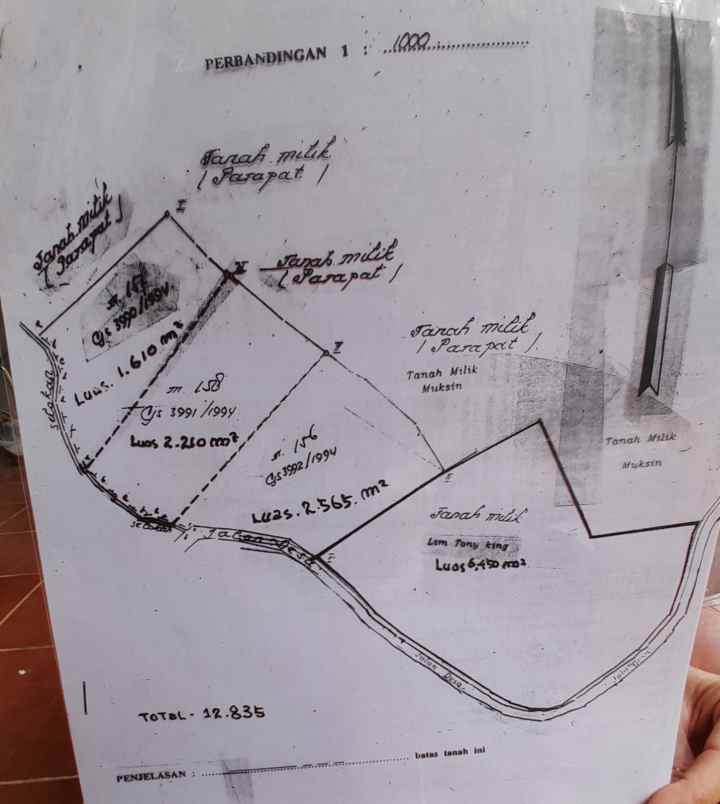 PERBANDINGAN 1 : 1000
Tanah milik
( Parapat )
Tanah milik
( Parapat )
I
IV
Tanah milik
( Parapat )
m. 156
Gs 3990/1994
Luas. 1.610 m²
Tanah milik
( Parapat )
Tanah Milik
Muksin
Tanah Milik
Muksin
selokan
m. 158
Gs 3991/1994
Luas 2.210 m²
m. 156
Gs 3992/1994
Luas. 2.565. m²
Tanah milik
Lim Tony king
Luas 6,450 m²
selokan
Jalan Desa
Jalan Desa
TOTAL - 12.835
PENJELASAN : batas tanah ini